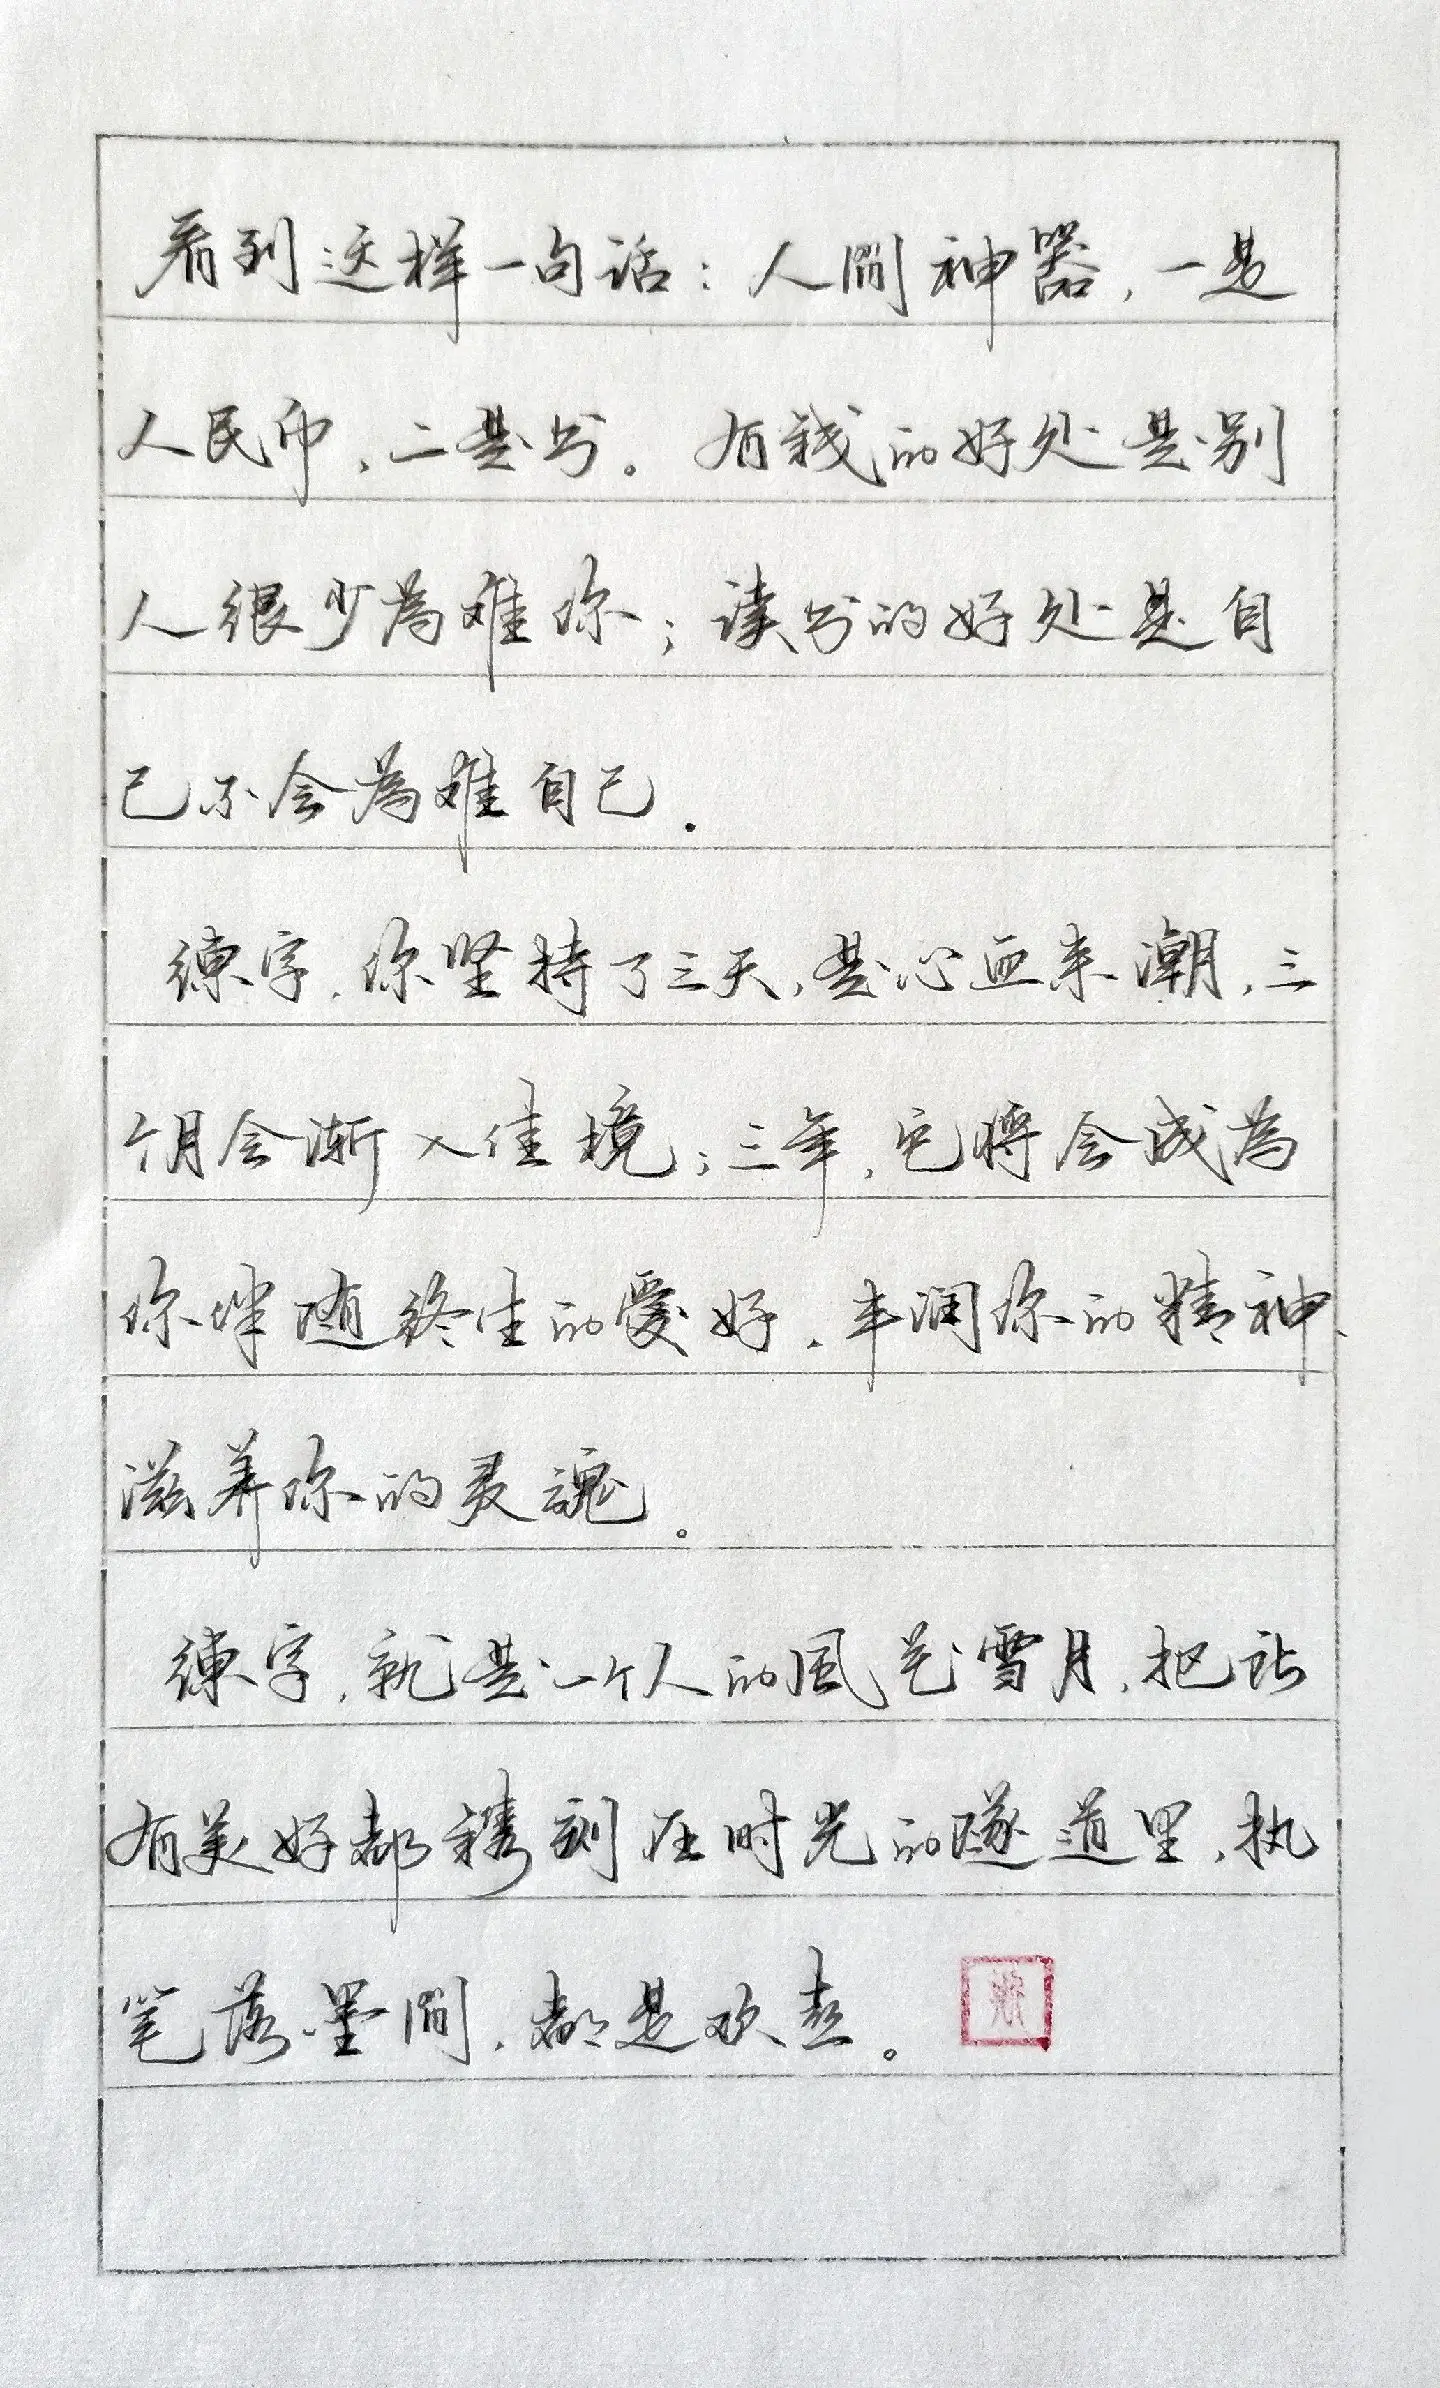 看到这样一句话：人间神器，一是
人民币，二是书。有钱的好处是别
人很少为难你；读书的好处是自
己不会为难自己.
练字，你坚持了三天，是心血来潮，三
个月会渐入佳境；三年，它将会成为
你伴随终生的爱好，丰润你的精神、
滋养你的灵魂。
练字，就是一个人的風花雪月，把让
有美好都镌刻在时光的隧道里，执
笔落墨间，都是欢喜。